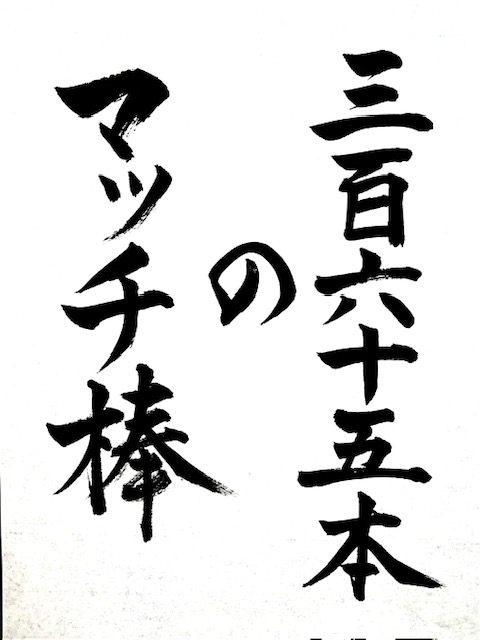 三百六十五本
の
マッチ棒